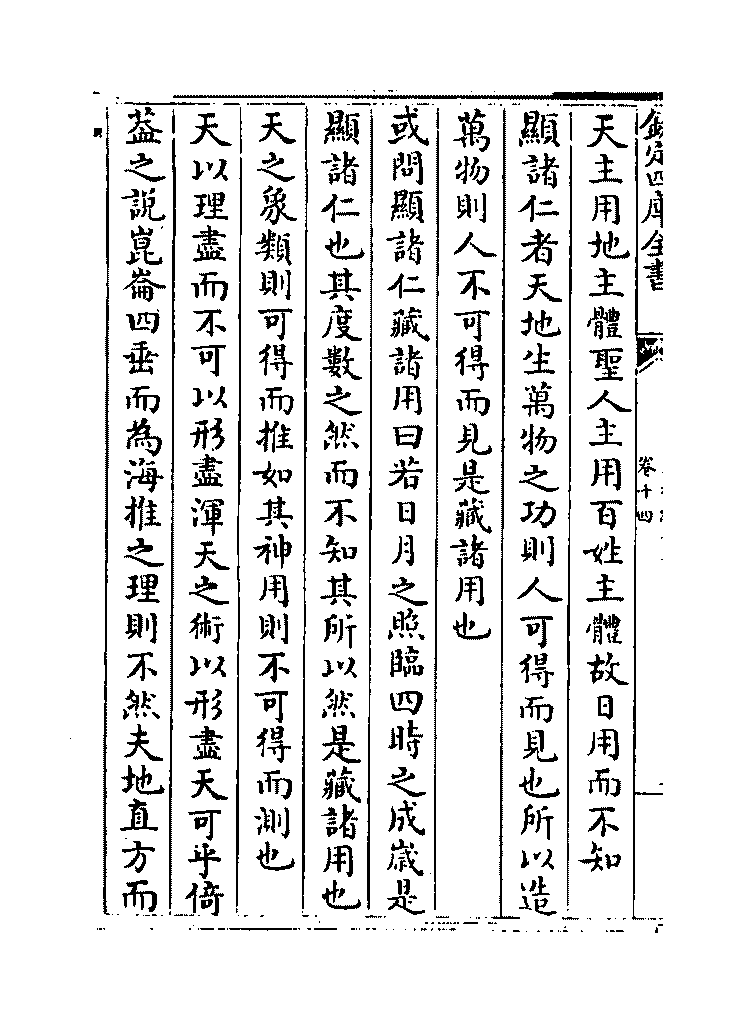 欽定四庫全書
卷十四
天主用地主體聖人主用百姓主體故日用而不知
顯諸仁者天地生萬物之功則人可得而見也所以造
萬物則人不可得而見是藏諸用也
或問顯諸仁藏諸用曰若日月之照臨四時之成歲是
顯諸仁也其度數之然而不知其所以然是藏諸用也
天之象類則可得而推如其神用則不可得而測也
天以理盡而不可以形盡渾天之術以形盡天可乎倚
葢之說崑崙四垂而為海推之理則不然夫地直方而